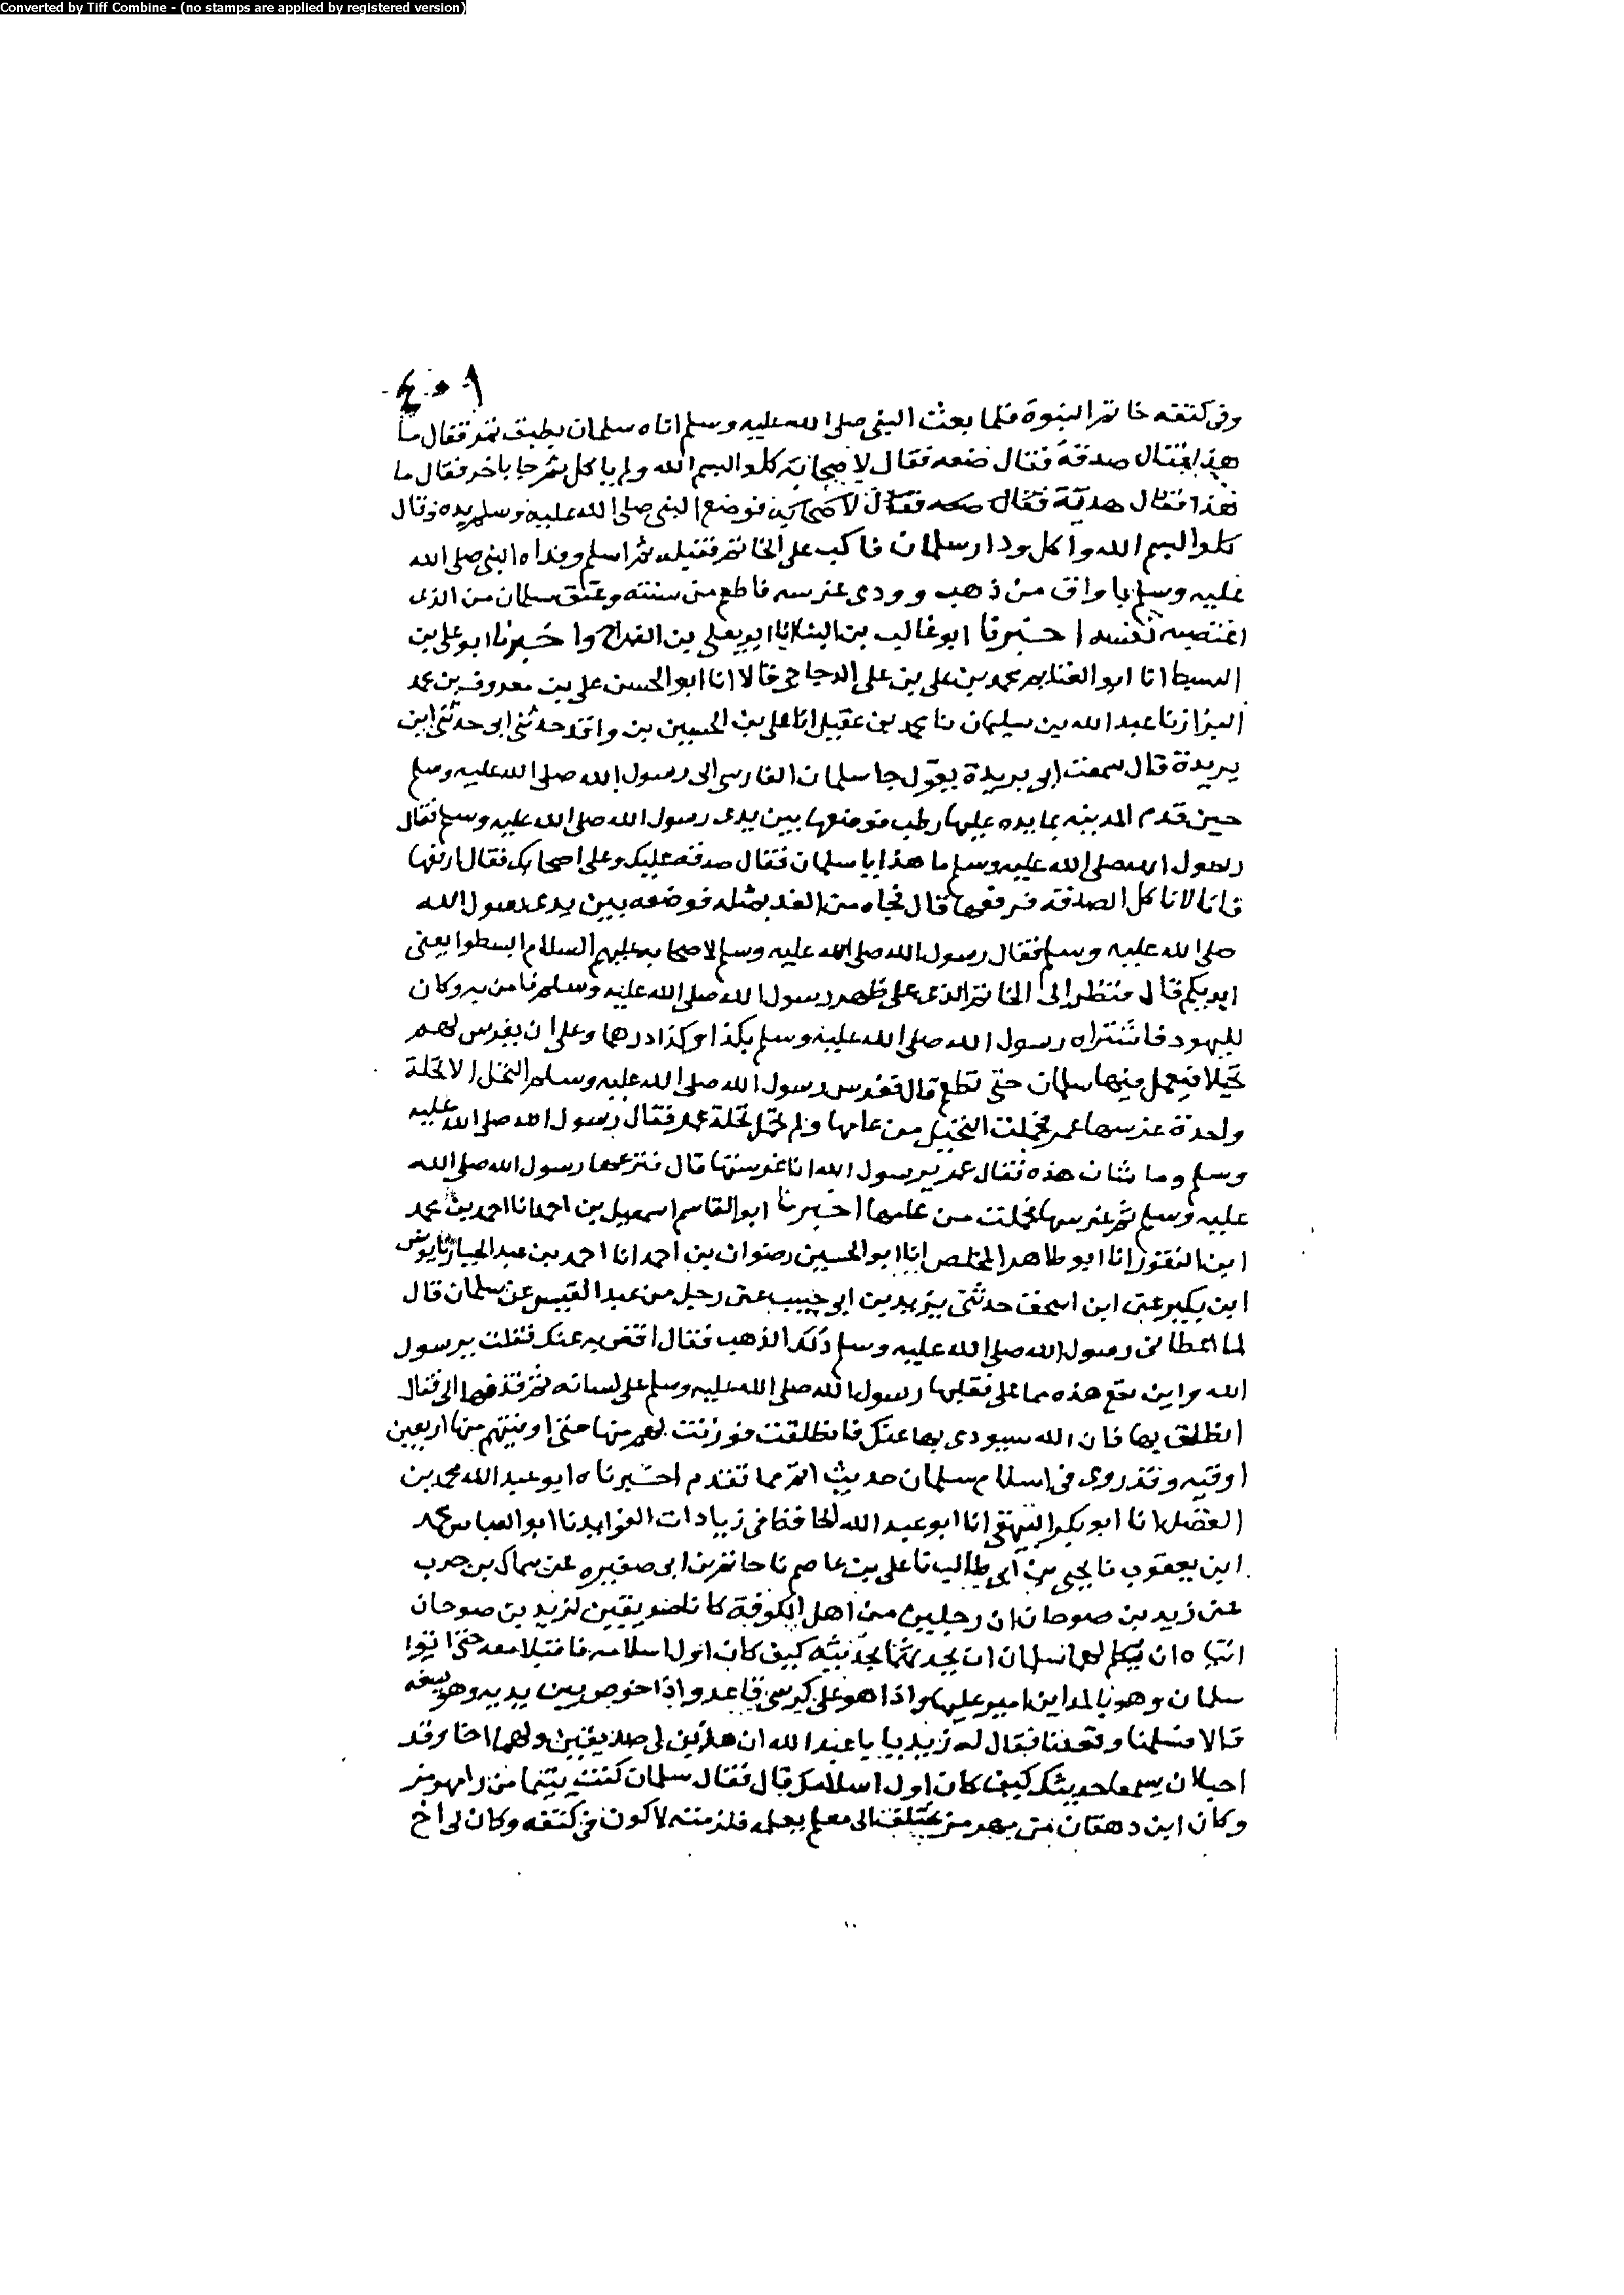 Converted by Tiff Combine - (no stamps are applied by registered version)
٤٠٩
وفى كتفه خاتم النبوة فلما بعث النبى صلى الله عليه وسلم اتاه سلمان بطبق تمر فقال ما
هذا فقال صدقة فقال ضعه فقال لاصحابه كلوا بسم الله ولم ياكل ثم جا باخر فقال ما
هذا فقال هدية فقال ضعه فقال لاصحابه فوضع النبى صلى الله عليه وسلم يده وقال
كلوا بسم الله واكل ودار سلمان فاكب على الخاتم فقبله ثم اسلم وفداه النبى صلى الله
عليه وسلم باواق من ذهب وودى غرسه فاطعم من سنته وعتق سلمان من الذى
اغتصبه نفسه اخبرنا ابو غالب بن البنا انا ابو يعلى بن الفراح واخبرنا ابو على بن
السبط انا ابو الغنايم محمد بن على بن على الدجاجى قالا انا ابو الحسن على بن معروف بن محمد
البزاز نا عبد الله بن سليمان نا محمد بن عقيل انا على بن الحسين بن واقد حدثنى ابى حدثنى ابن
بريدة قال سمعت ابى بريدة يقول جا سلمان الفارسى الى رسول الله صلى الله عليه وسلم
حين قدم المدينه بمايده عليها رطب فوضعها بين يدى رسول الله صلى الله عليه وسلم فقال
رسول الله صلى الله عليه وسلم ما هذا يا سلمان فقال صدقه عليك وعلى اصحابك فقال ارفعها
فانا لا ناكل الصدقه فرفعها قال فجاه من الغد بمثله فوضعه بين يدى رسول الله
صلى الله عليه وسلم فقال رسول الله صلى الله عليه وسلم لاصحابه عليهم السلام ابسطوا يعنى
ايديكم قال فنظر الى الخاتم الذى على ظهر رسول الله صلى الله عليه وسلم فامن به وكان
لليهود فاشتراه رسول الله صلى الله عليه وسلم بكذا وكذا درهما وعلى ان يغرس لهم
نخيلا فيعمل فيها سلمان حتى تطعم قال فغرس رسول الله صلى الله عليه وسلم النخل الا نخلة
واحدة غرسها عمر فحملت النخيل من عامها ولم تحمل نخلة عمر فقال رسول الله صلى الله عليه
وسلم وما شان هذه فقال عمر يرسول الله انا غرستها قال فنزعها رسول الله صلى الله
عليه وسلم ثم غرسها فحملت من عامها اخبرنا ابو القاسم اسمعيل بن احمد انا احمد بن محمد
ابن النقور انا ابو طاهر المخلص انا ابو الحسين رضوان بن احمد انا احمد بن عبد الجبار نا يونس
ابن بكير عن ابن اسحق حدثنى يزيد بن ابى حبيب عن رجل من عبد القيس عن سلمان قال
لما اعطانى رسول الله صلى الله عليه وسلم ذلك الذهب فقال اقض به عنك فقلت يرسول
الله واين تقع هذه مما على فقلبها رسول الله صلى الله عليه وسلم على لسانه ثم قذفها الى فقال
انطلق بها فان الله سيودى بها عنك فانطلقت فوزنت لهم منها حتى اوفيتهم منها اربعين
اوقيه وقد روى فى اسلام سلمان حديث اتم مما تقدم اخبرناه ابو عبد الله محمد بن
الفضل انا ابو بكر البيهقى انا ابو عبد الله الحافظ فى زيادات الفوايد نا ابو العباس محمد
ابن يعقوب نا يحيى بن ابى طالب نا على بن عاصم نا حاتم بن ابى صغيره عن سماك بن حرب
عن زيد بن صوحان ان رجلين من اهل الكوفة كانا صديقين لزيد بن صوحان
اتياه ان يكلم لهما سلمان ان يحدثهما بحديثه كيف كان اول اسلامه فاقبلا معه حتى اتوا
سلمان وهو بالمداين امير عليها واذا هو على كرسى قاعد واذا خوص بين يديه وهو يسفه
قالا فسلمنا وقعدنا فقال له زيد يا با عبد الله ان هذين لى صديقين ولهما اخا وقد
احبا ان يسمعا حديثك كيف كان اول اسلامك قال فقال سلمان كنت يتيما من رامهرمز
وكان ابن دهقان رامهرمز يختلف الى معلم يعلمه فلزمته لاكون فى كنفه وكان لى اخ